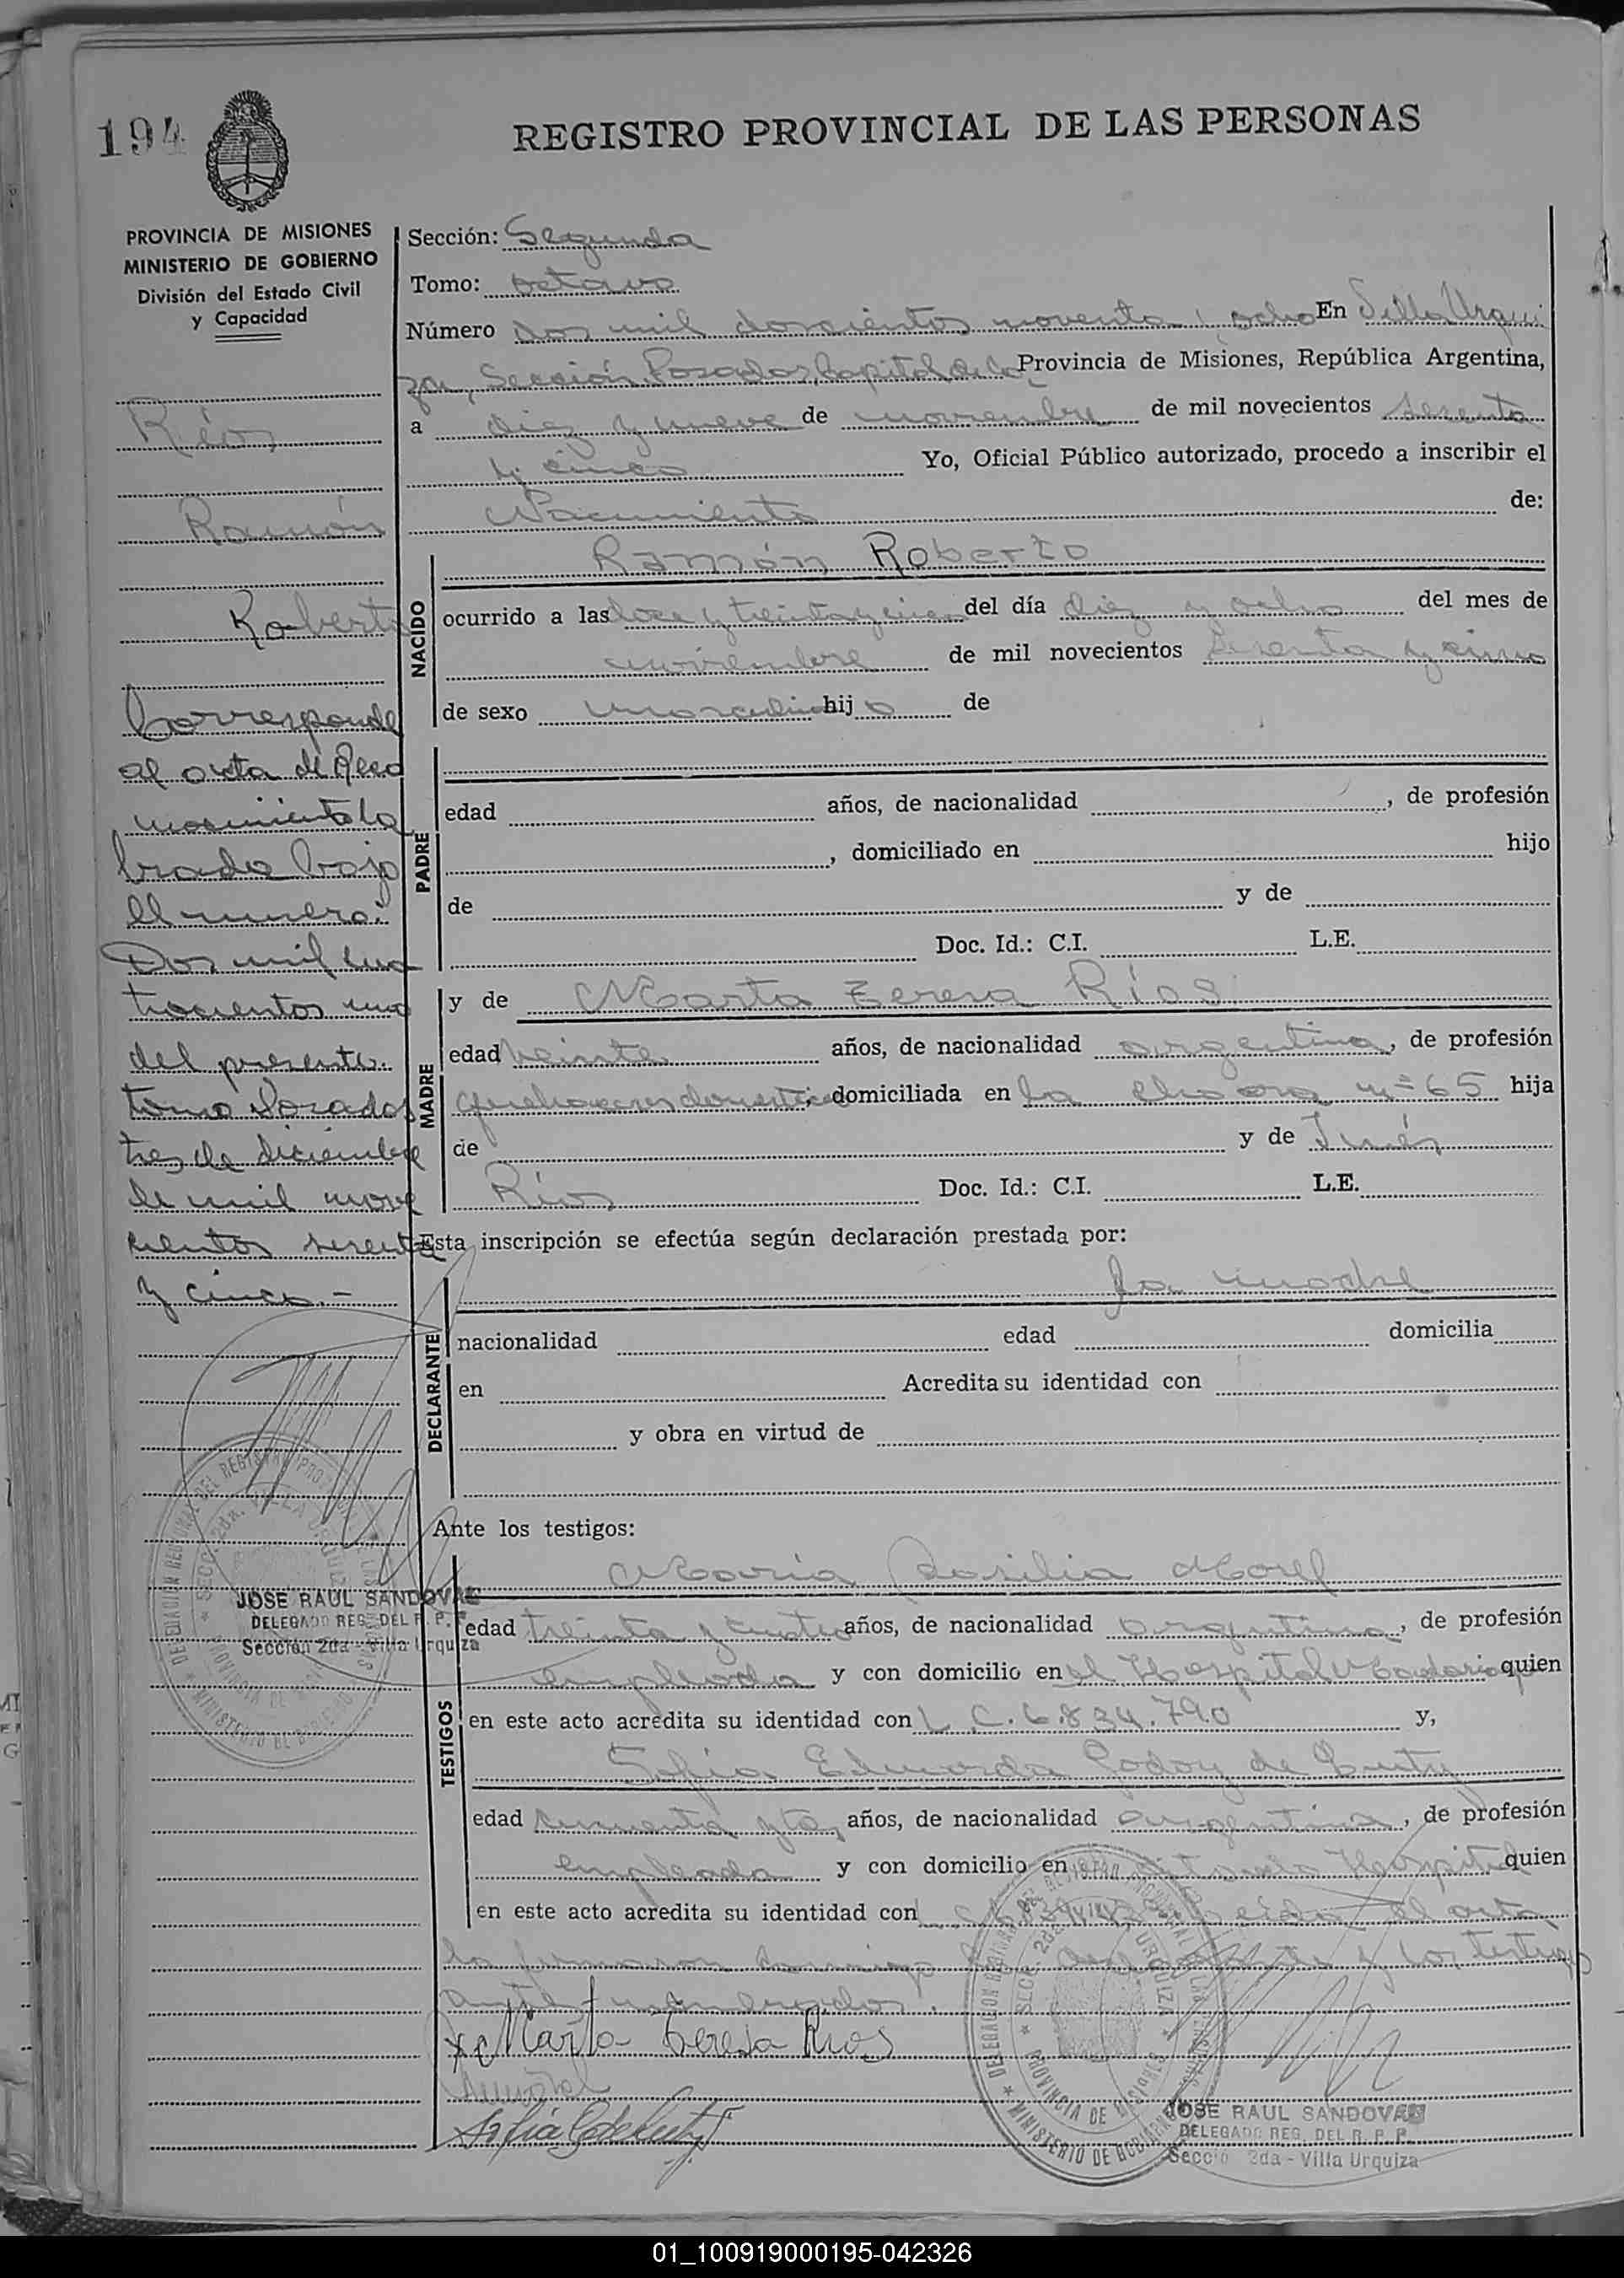 194
REGISTRO PROVINCIAL DE LAS PERSONAS
PROVINCIA DE MISIONES
MINISTERIO DE GOBIERNO
División del Estado Civil
y Capacidad
Ríos
Ramón
Roberto
Corresponde
al acta de Reco
nocimiento la
brada bajo
el numero:
Dos mil cua
trocientos uno
del presente
tomo Posadas
tres de diciembre
de mil nove
cientos sesenta
y cinco.-
JOSE RAUL SANDOVAL
DELEGADO REG. DEL R. P. P.
Sección 2da - Villa Urquiza
Sección: Segunda
Tomo: octavo
Número Dos mil doscientos noventa y ocho En Villa Urqui
za, Sección Posadas, Capital de la Provincia de Misiones, República Argentina,
a diez y nueve de noviembre de mil novecientos sesenta
y cinco Yo, Oficial Público autorizado, procedo a inscribir el
Nacimiento de:
NACIDO
Ramón Roberto
ocurrido a las doce y treinta y cinco del día diez y ocho del mes de
noviembre de mil novecientos sesenta y cinco
de sexo masculino hijo de
PADRE
edad años, de nacionalidad , de profesión
, domiciliado en hijo
de y de
Doc. Id.: C.I. L.E.
MADRE
y de Marta Teresa Ríos
edad veinte años, de nacionalidad argentina, de profesión
quehaceres domesticos domiciliada en La chacra nº 65 hija
de y de Inés
Ríos Doc. Id.: C.I. L.E.
Esta inscripción se efectúa según declaración prestada por:
la madre
DECLARANTE
nacionalidad edad domicilia
en Acredita su identidad con
y obra en virtud de
Ante los testigos:
TESTIGOS
María Morel
edad treinta y cuatro años, de nacionalidad argentina, de profesión
empleada y con domicilio en el Hospital Madariaga quien
en este acto acredita su identidad con L.C. 6.834.790 y,
Sofia Eduarda Godoy de
edad cincuenta y años, de nacionalidad argentina, de profesión
empleada y con domicilio en Hospital quien
en este acto acredita su identidad con el acta
la firmaron conmigo y los testigos
Marta Teresa Rios
DELEGACION REGIONAL DEL REGISTRO PROVINCIAL DE LAS PERSONAS
SECC. 2da. VILLA URQUIZA
PROVINCIA DE MISIONES
MINISTERIO DE GOBIERNO
JOSE RAUL SANDOVAL
DELEGADO REG. DEL R. P. P.
Secció 2da - Villa Urquiza
01_100919000195-042326